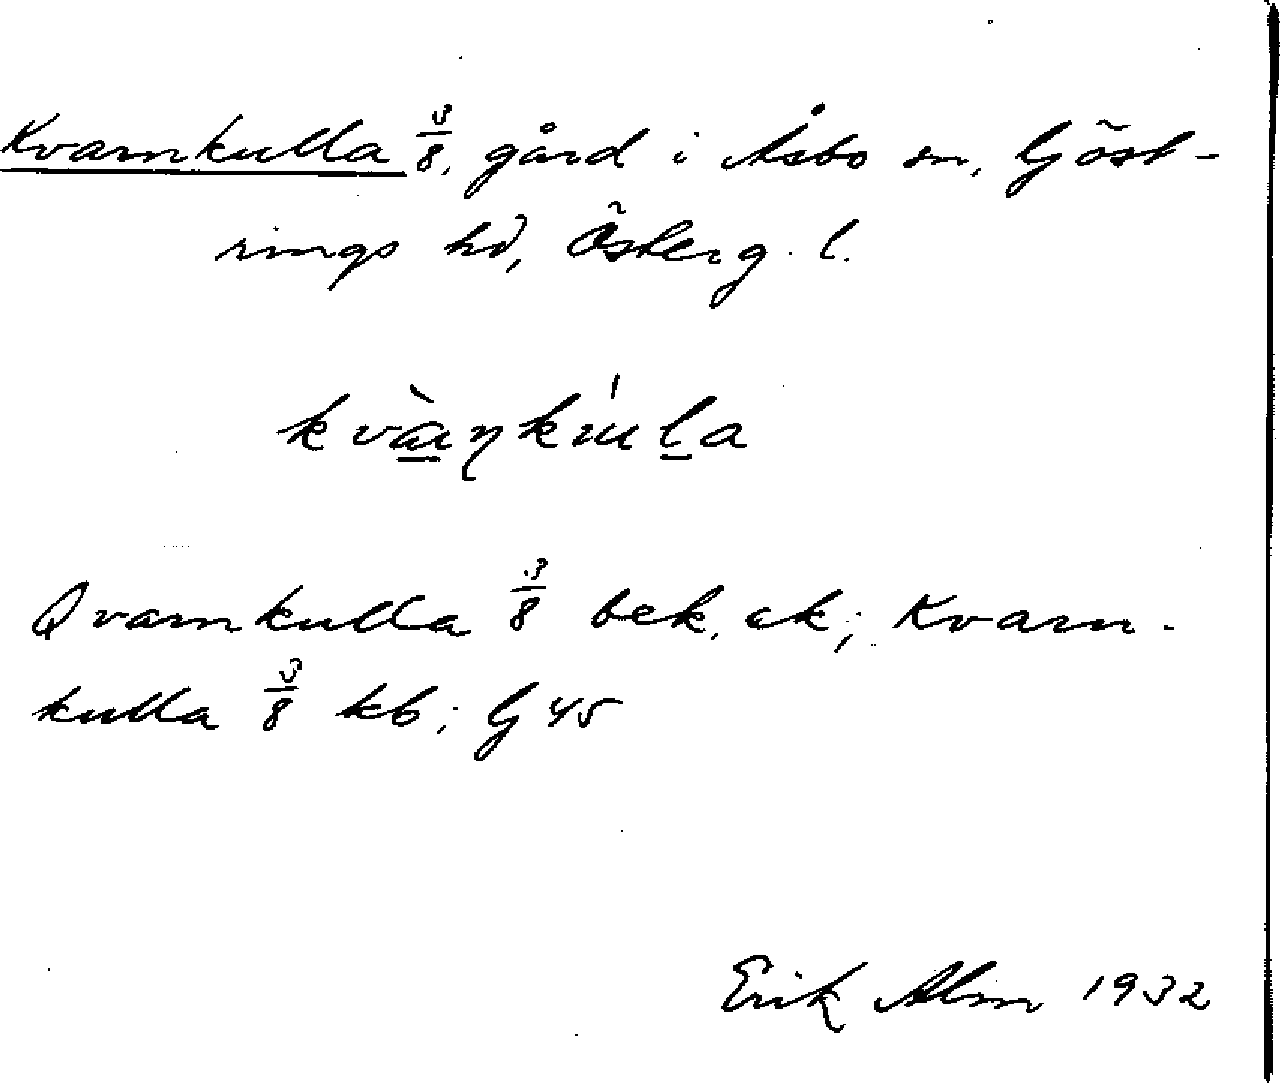 Kvarnkulla 3/8, gård i Åsbo sn, Göst-
rings hd, Österg. l.
kvà̲ŋkúl̲a
Qvarnkulla 3/8 bek. ek; Kvarn-
kulla 3/8 kb; G 45
Erik Alm 1932